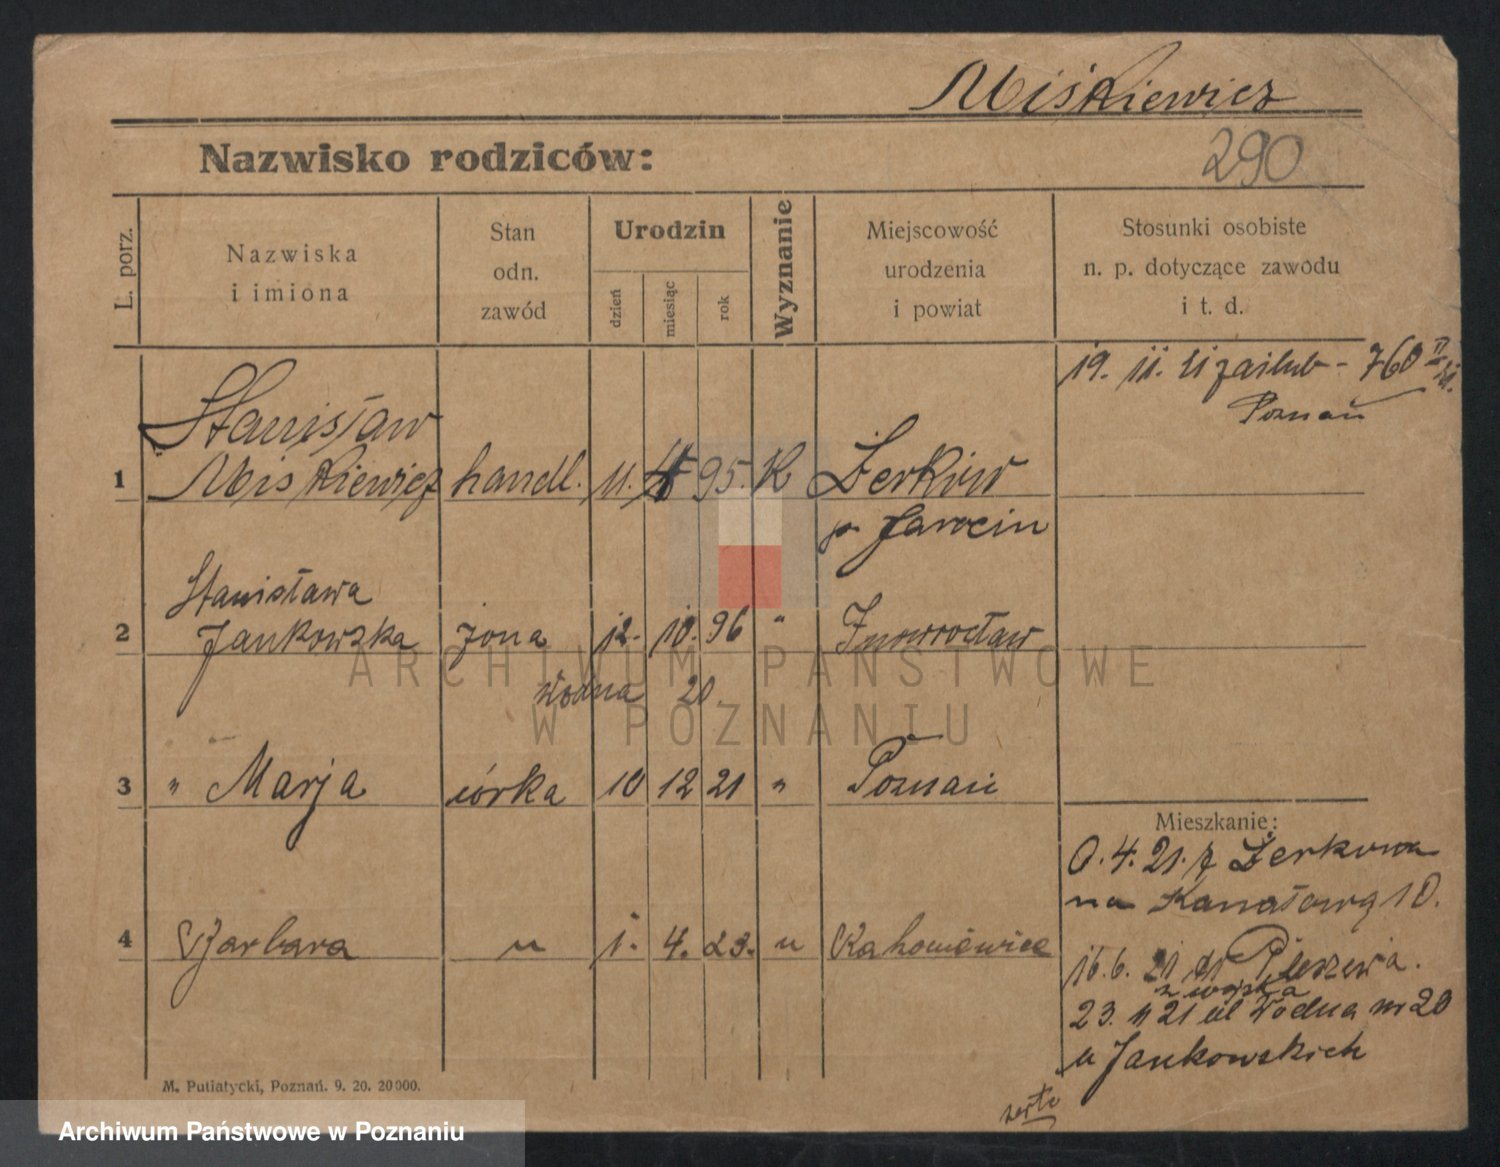 Miśkiewicz
Nazwisko rodziców:
290
L. porz.
Nazwiska
i imiona
Stan
odn.
zawód
Urodzin
dzień
miesiąc
rok
Wyznanie
Miejscowość
urodzenia
i powiat
Stosunki osobiste
n. p. dotyczące zawodu
i t. d.
19. 11. 21 zaślub - 760
Poznań
Stanisław
1 Miśkiewicz handl. 11. 95. K Żerków
p. Jarocin
Stanisława
2 Jankowska żona 12. 10. 96 " Inowrocław
Wodna 20
3 " Marja córka 10 12 21 " Poznań
Mieszkanie:
0. 4. 21. z Żerkowa
na Kanałową 10.
4 Barbara " 1. 4. 23. "
16. 6. 21 Pleszewa.
z wojska
23. 11 21 ul Wodna nr 20
u Jankowskich
M. Putiatycki, Poznań. 9. 20. 20000.
ARCHIWUM PAŃSTWOWE
W POZNANIU
Archiwum Państwowe w Poznaniu